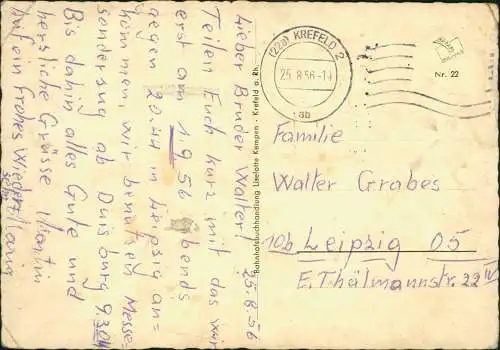 25.8.56
Lieber Bruder Walter!
Teilen Euch kurz mit das wir
erst am 1.9.56 abends
gegen 20.44 in Leipzig an=
kommen, wir benutzen Messe=
sonderzug ab Duisburg 9.30h
Bis dahin alles Gute und
herzliche Grüsse Martin
Auf ein frohes Wieder=
sehn
Bahnhofsbuchhandlung Liselotte Kempen - Krefeld a. Rh.
(22a) KREFELD 2
25.8.56-1
ab
Nr. 22
Familie
Walter Grabes
10b Leipzig O5
E. Thälmannstr. 22 IV